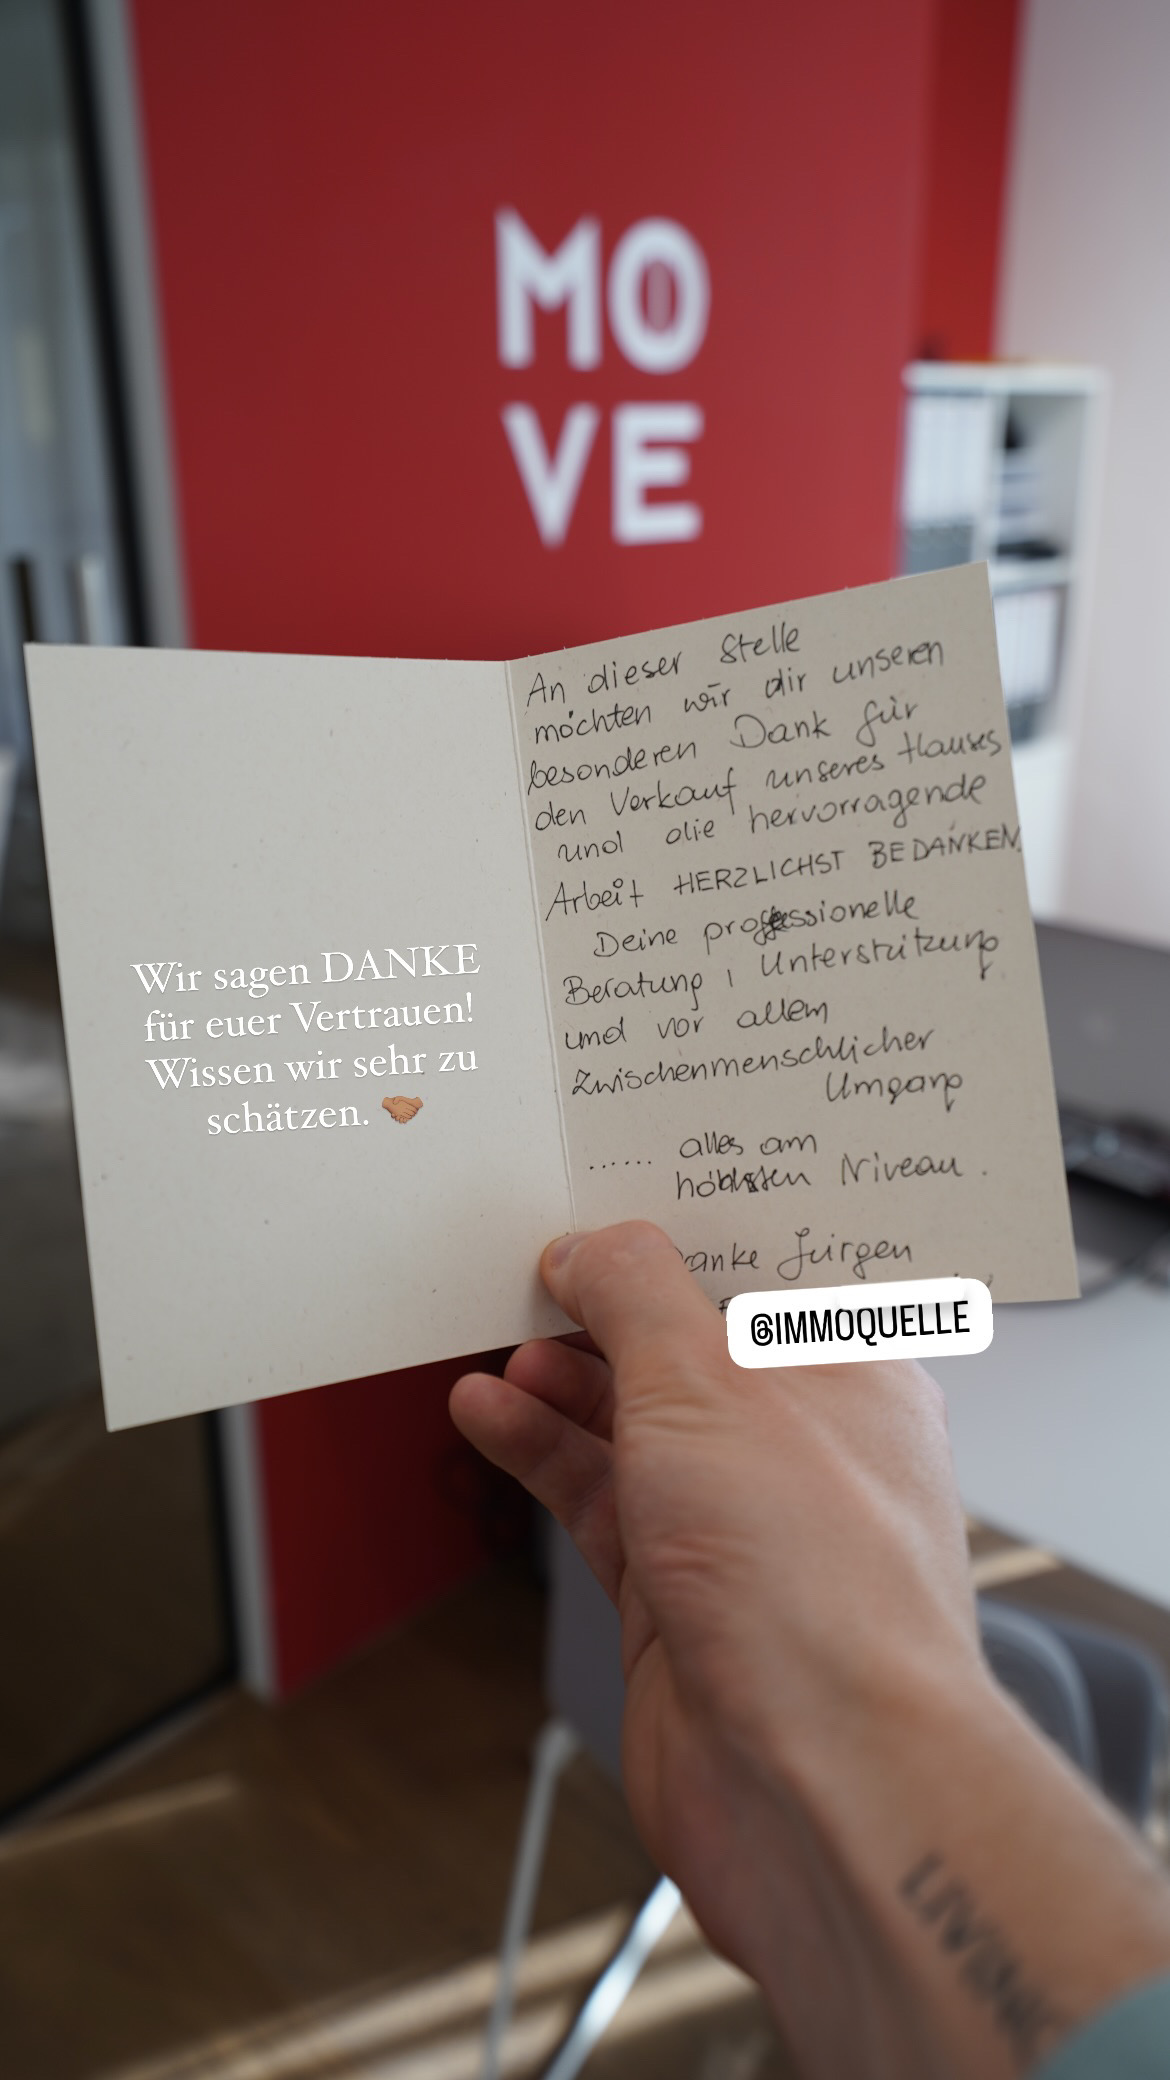 MO
VE
Wir sagen DANKE
für euer Vertrauen!
Wissen wir sehr zu
schätzen. 🤝🏽
An dieser Stelle
möchten wir dir unseren
besonderen Dank für
den Verkauf unseres Hauses
und die hervorragende
Arbeit HERZLICHST BEDANKEN.
Deine professionelle
Beratung, Unterstützung
und vor allem
Zwischenmenschlicher
Umgang
...... alles am
höchsten Niveau.
anke Jürgen
@IMMOQUELLE
LIVING